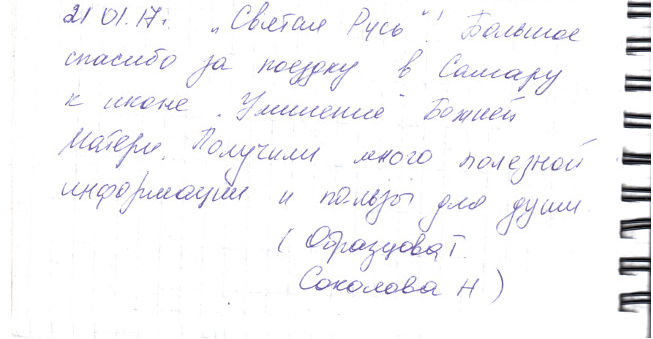 21.01.17г. „Святая Русь"! Большое
спасибо за поездку в Самару
к иконе „Умиление" Божией
Матери. Получили много полезной
информации и пользы для души.
(Образцова Т.
Соколова Н)